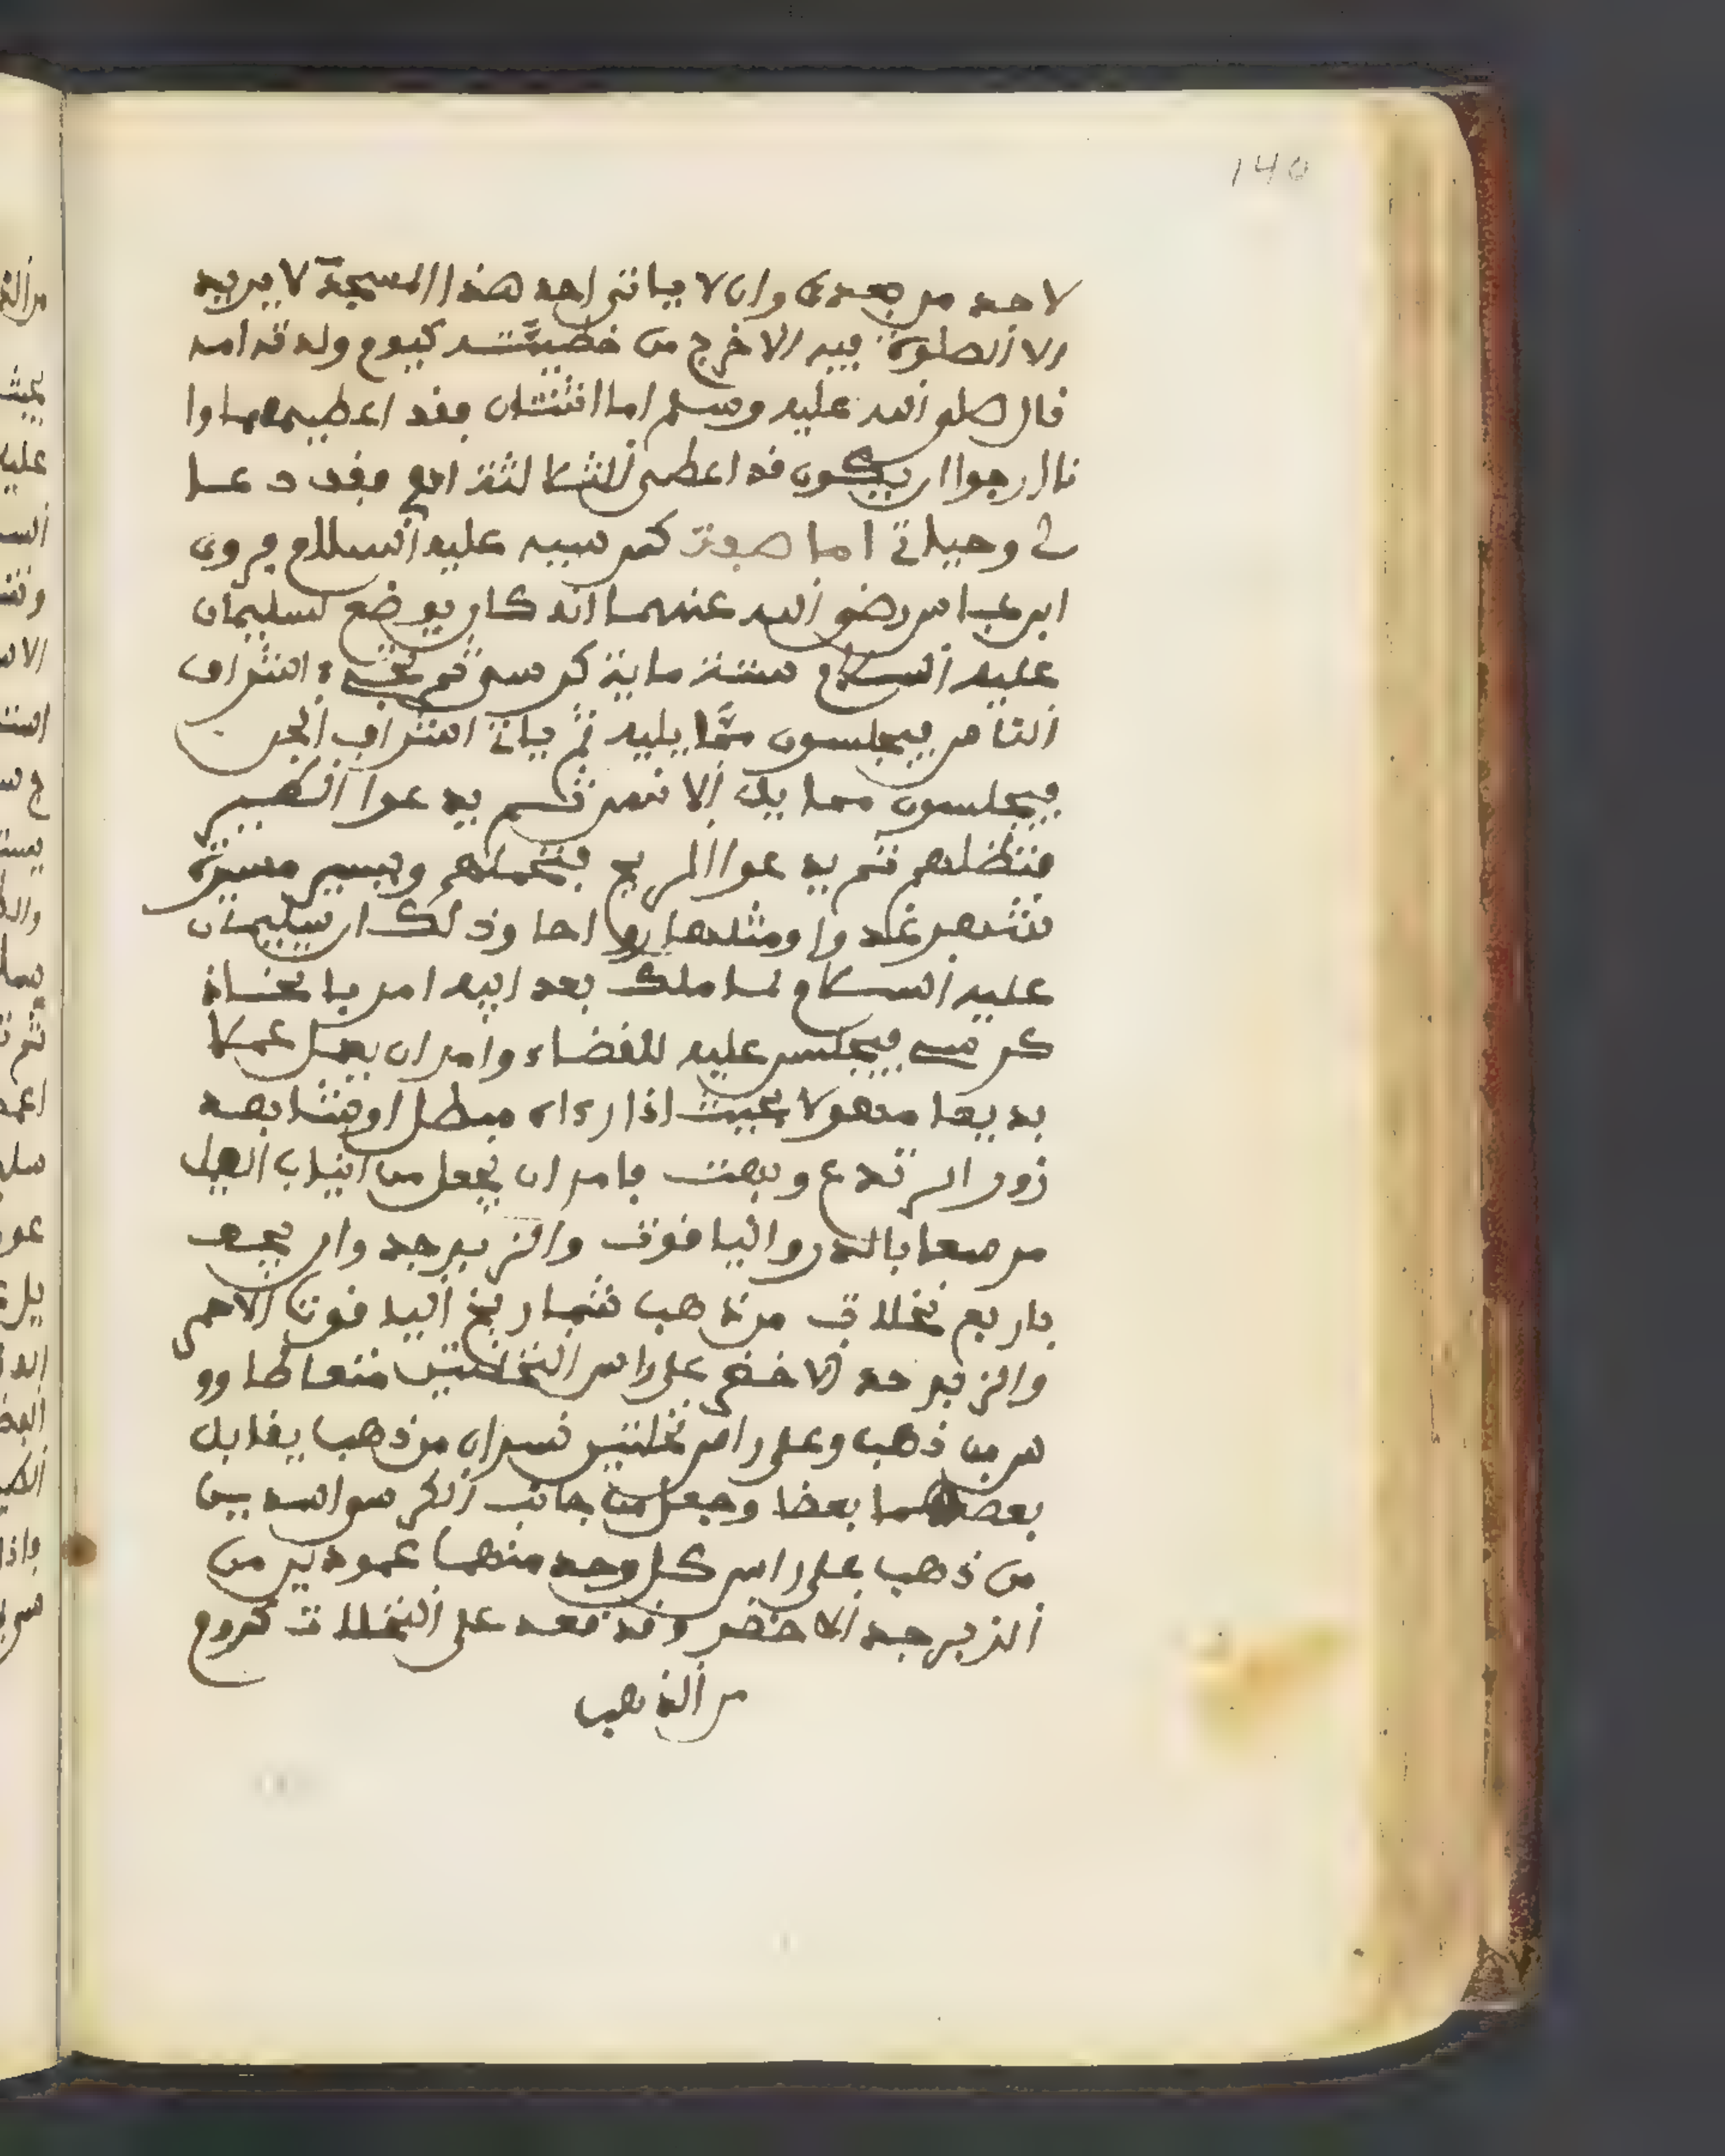 140
لاحد من بعدي وان لا ياتي احد هذا المسجد لا يريد
الا الصلوة فيه الا خرج من خطيئته كيوم ولدته امه
قال صلى الله عليه وسلم اما اثنتان فقد اعطيهما وا
نا ارجوا ان يكون قد اعطي الثالثة
في وحياتي اما صفة كرسيه عليه السلام فروي
ابن عباس رضي الله عنهما انه كان يوضع لسليمان
عليه السلام ستة ماية كرسي ثم تجيء اشراف
الناس فيجلسون مما يليه ثم ياتي اشراف الجن
فيجلسون مما يلي الانس ثم يدعوا الطير
فتظلهم ثم يدعوا الريح فتحملهم ويسير مسيرة
شهر غدوا ومثلها رواحا وذلك ان سليمان
عليه السلام لما ملك بعد ابيه امر باتخاذ
كرسي يجلس عليه للقضاء وامر ان يعمل عملا
بديعا مهولا بحيث اذا رءاه مبطل او شاهد
زور ارتدع وبهت فامر ان يجعل من انياب الفيل
مرصعا بالدر والياقوت والزبرجد وان يحف
باربع نخلات من ذهب شماريخ الياقوت الاحمر
والزبرجد الاخضر على راس النخلتين طاوو
س من ذهب وعلى راس نخلتين نسران من ذهب يقابل
بعضهما بعضا وجعل من جانب الكرسي اسدين
من ذهب على راس كل وحد منهما عمودين من
الزبرجد الاخضر وقد عقد على النخلات كروم
من الذهب